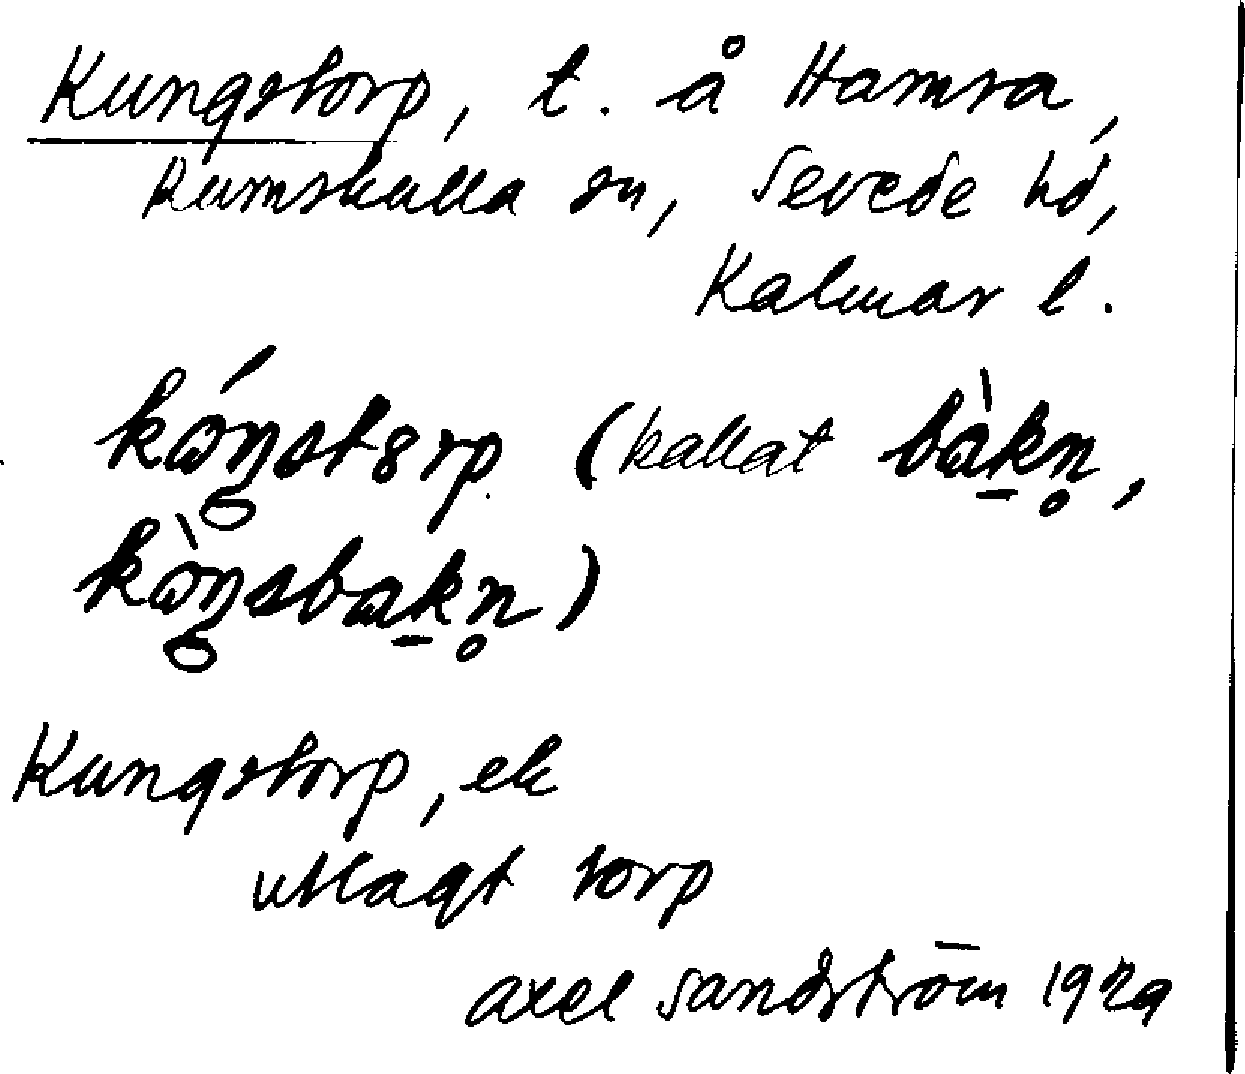 Kungstorp, t. å Hamra,
Rumskulla sn, Sevede hd,
Kalmar l.
kóŋstɵrp (kallat bàk̠n̥,
kòŋsbak̠n̥)
Kungstorp, ek
utlagt torp
Axel Sandström 1929